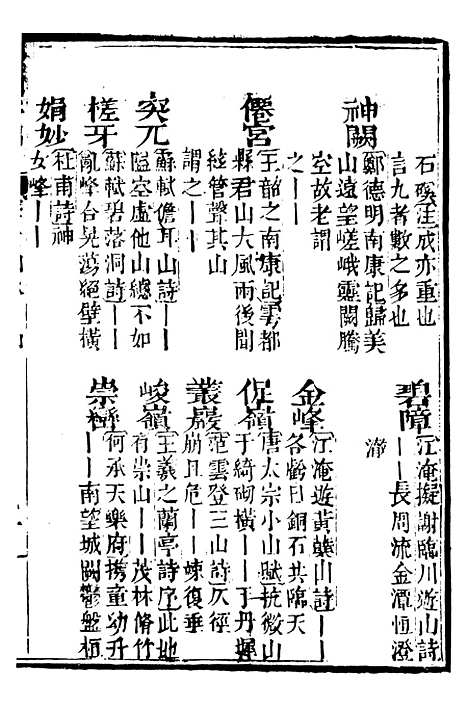 石磎注成亦重也
言九者數之多也
神闕
鄭德明南康記歸美
山遠望嵯峨靈闕騰
空故老謂
之丨丨
僊宮
王韶之南康記雩都
縣君山大風雨後聞
絃管聲其山
謂之丨丨
突兀
蘇軾儋耳山詩丨丨
隘空虛他山總不如
槎牙
蘇軾碧落洞詩丨丨
亂峰合晃蕩絕壁橫
娟妙
杜甫詩神
女峰丨丨
碧障
江淹擬謝臨川遊山詩
丨丨長周流金潭恒澄
瀞
金峰
江淹遊黃蘗山詩丨丨
各虧日銅石共臨天
促嶺
唐太宗小山賦抗微山
于綺砌橫丨丨于丹墀
叢巖
范雲登三山詩仄徑
崩且危丨丨竦復垂
峻嶺
王羲之蘭亭詩序此地
有崇山丨丨茂林脩竹
崇巒
何承天樂府携童幼升
丨丨南望城闕鬱盤桓